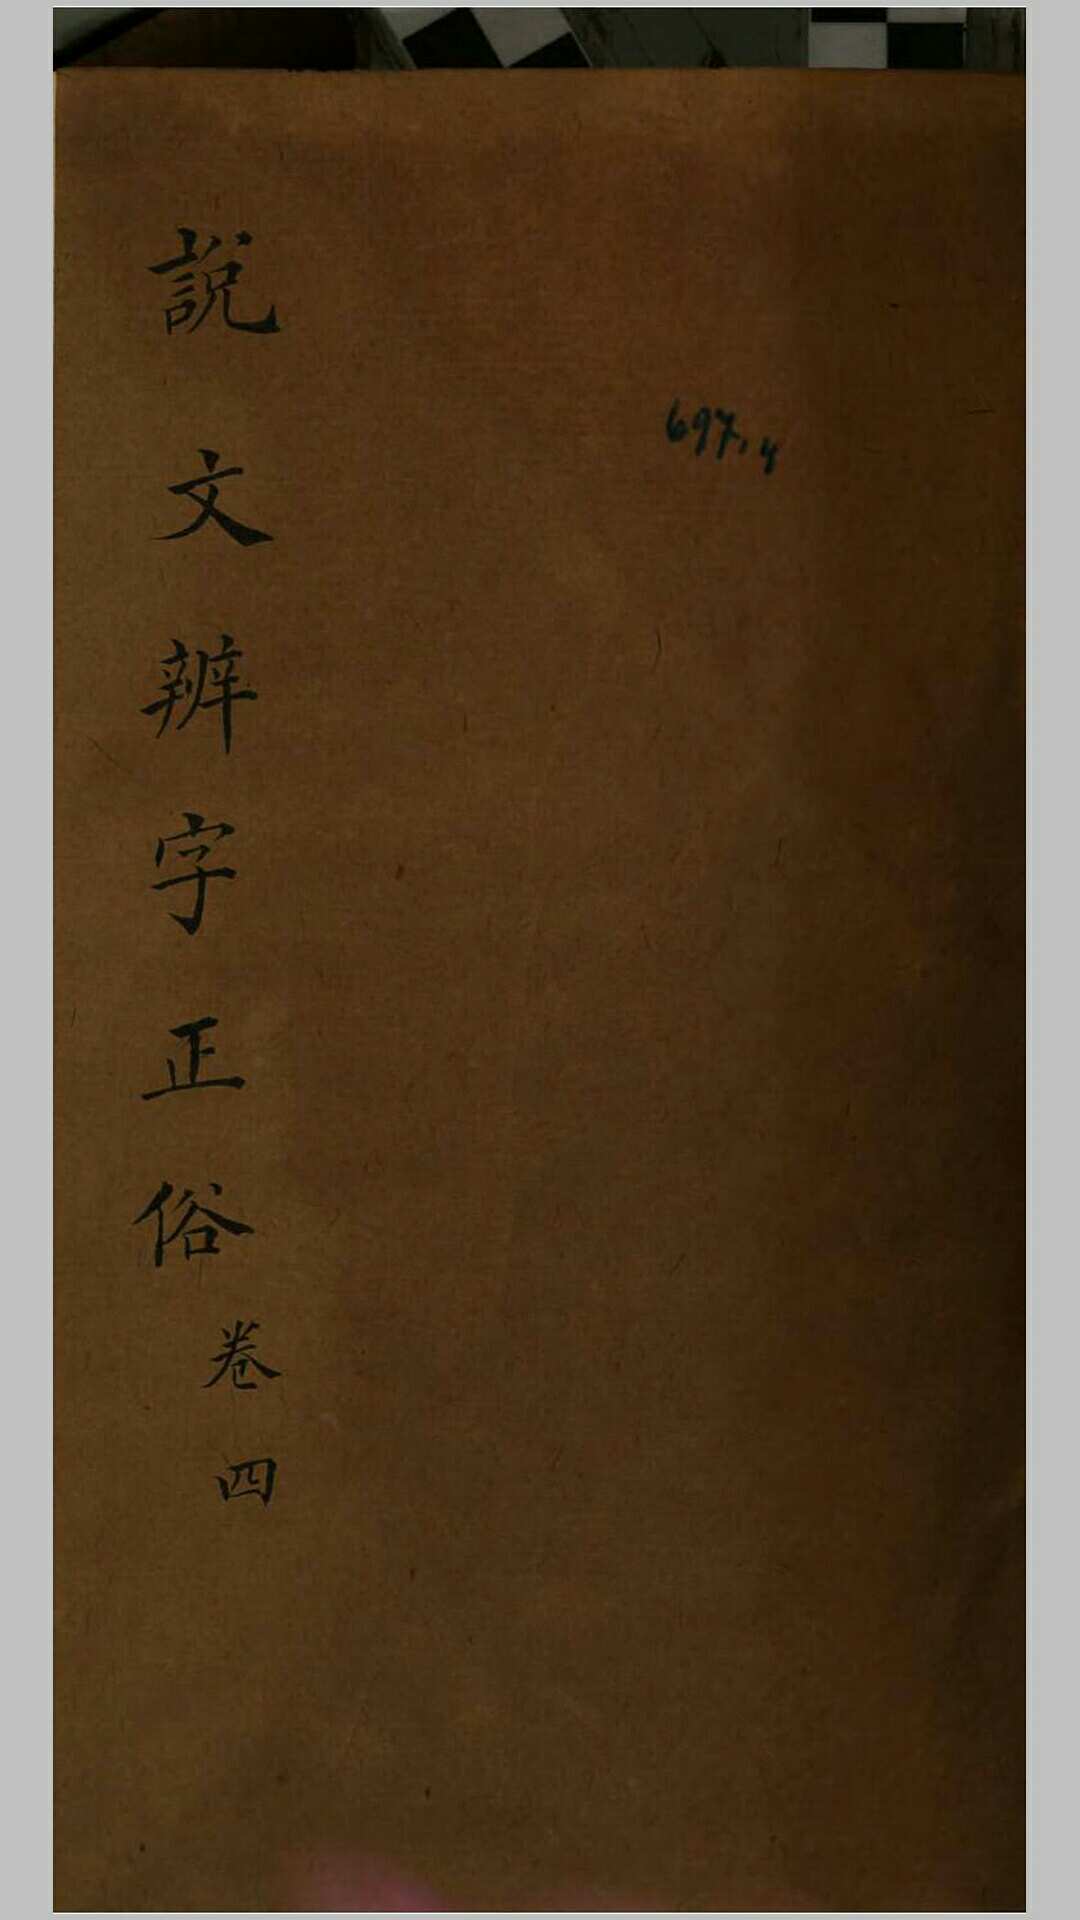 説文辨字正俗
卷四
697.4